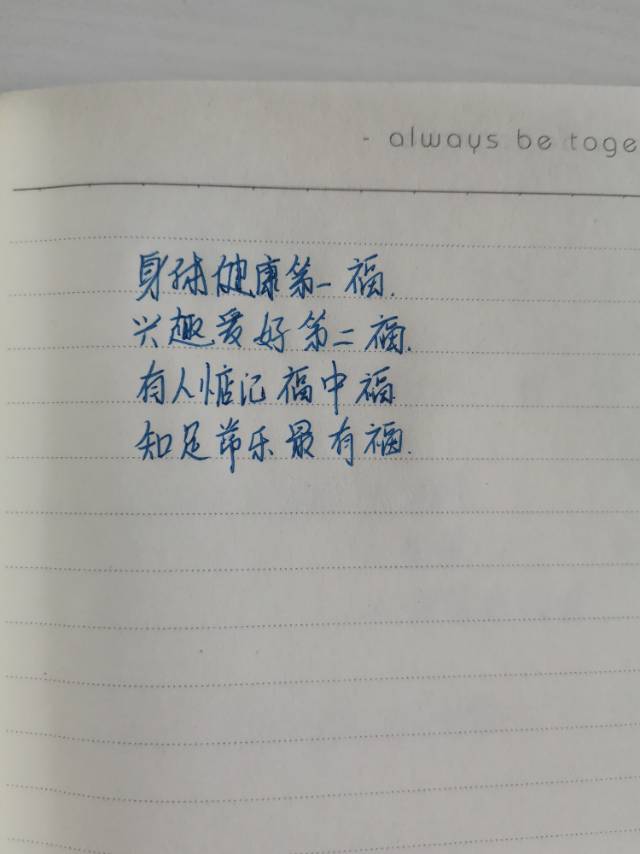 - always be toge
身体健康第一福.
兴趣爱好第二福.
有人惦记福中福
知足常乐最有福.